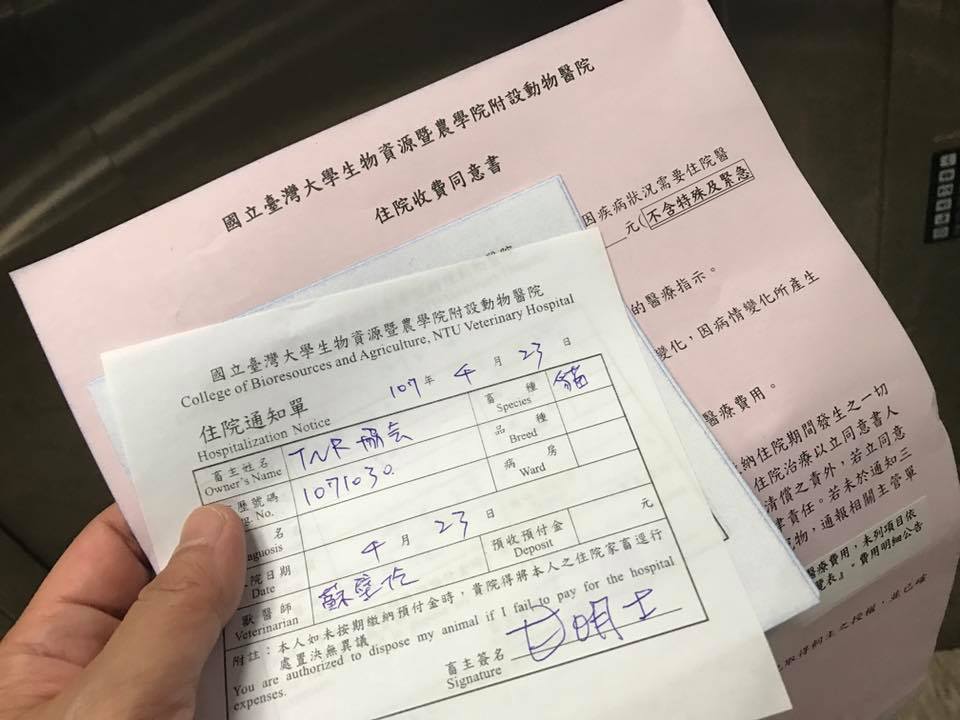 國立臺灣大學生物資源暨農學院附設動物醫院
住院收費同意書
因疾病狀況需要住院醫
元(不含特殊及緊急
的醫療指示。
變化,因病情變化所產生
醫療費用。
納住院期間發生之一切
住院治療以立同意書人
清償之責外,若立同意
責任。若未於通知三
物,通報相關主管單
醫療費用,未列項目依
覽表』。費用明細公告
國立臺灣大學生物資源暨農學院附設動物醫院
College of Bioresources and Agriculture, NTU Veterinary Hospital
107 年 4 月 23 日
住院通知單
Hospitalization Notice
畜主姓名 TNR 協会 畜種 貓
Owner's Name Species
歷號碼 1071030 品種
No. Breed
名 病房
agnosis Ward
院日期 4 月 23 日 預收預付金 元
Date Deposit
獸醫師
Veterinarian
附註:本人如未按期繳納預付金時,貴院得將本人之住院家畜逕行
處置決無異議
You are authorized to dispose my animal if I fail to pay for the hospital
expenses.
畜主簽名
Signature